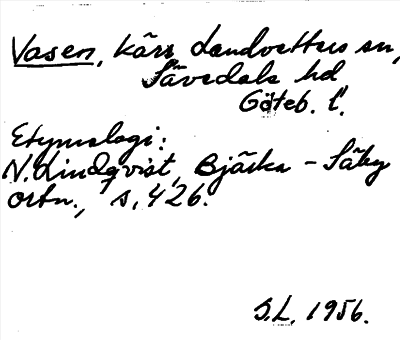 Vasen, kärr Landvetters sn,
Sävedals hd
Göteb. l.
Etymologi:
N. Lindqvist, Bjärka - Säby
ortn., s. 426.
S.L. 1956.